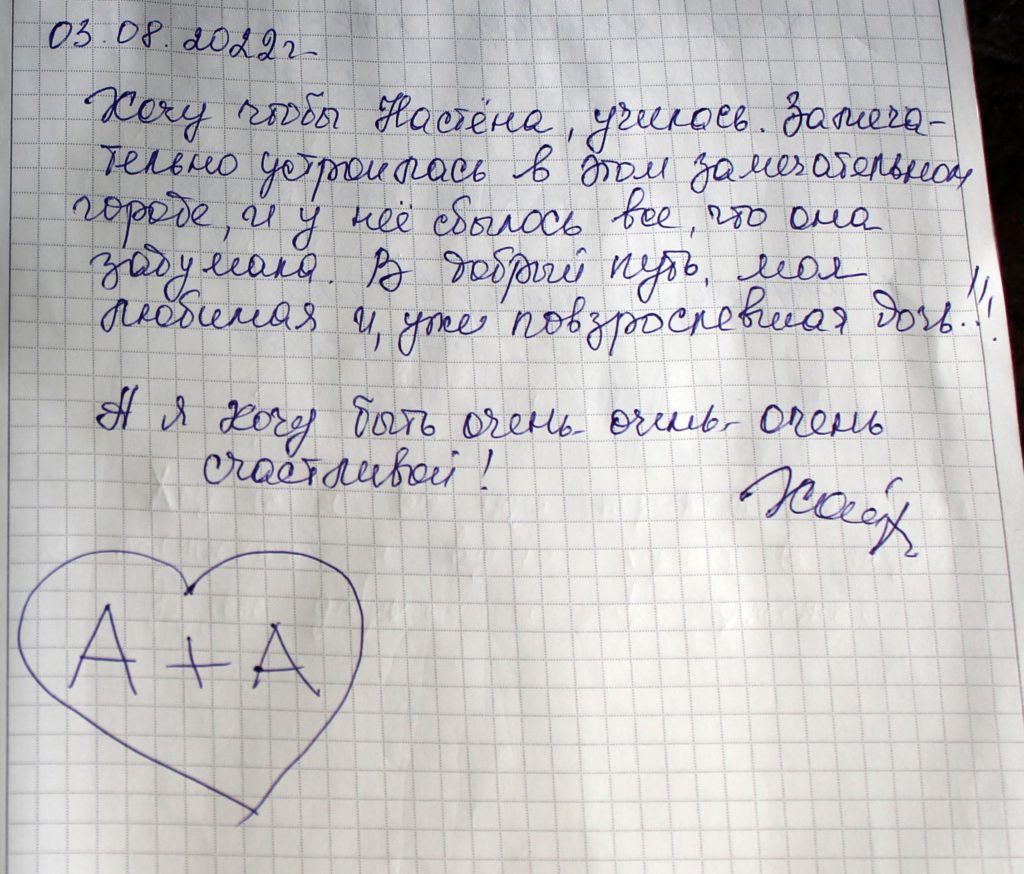 03.08.2022г
Хочу чтобы Настёна, училась. Замеча-
тельно устроилась в этом замечательном
городе, и у неё сбылось все, что она
задумала. В добрый путь, моя
любимая и, уже повзрослевшая дочь.!!!
А я хочу быть очень-очень-очень
счастливой!
А + А